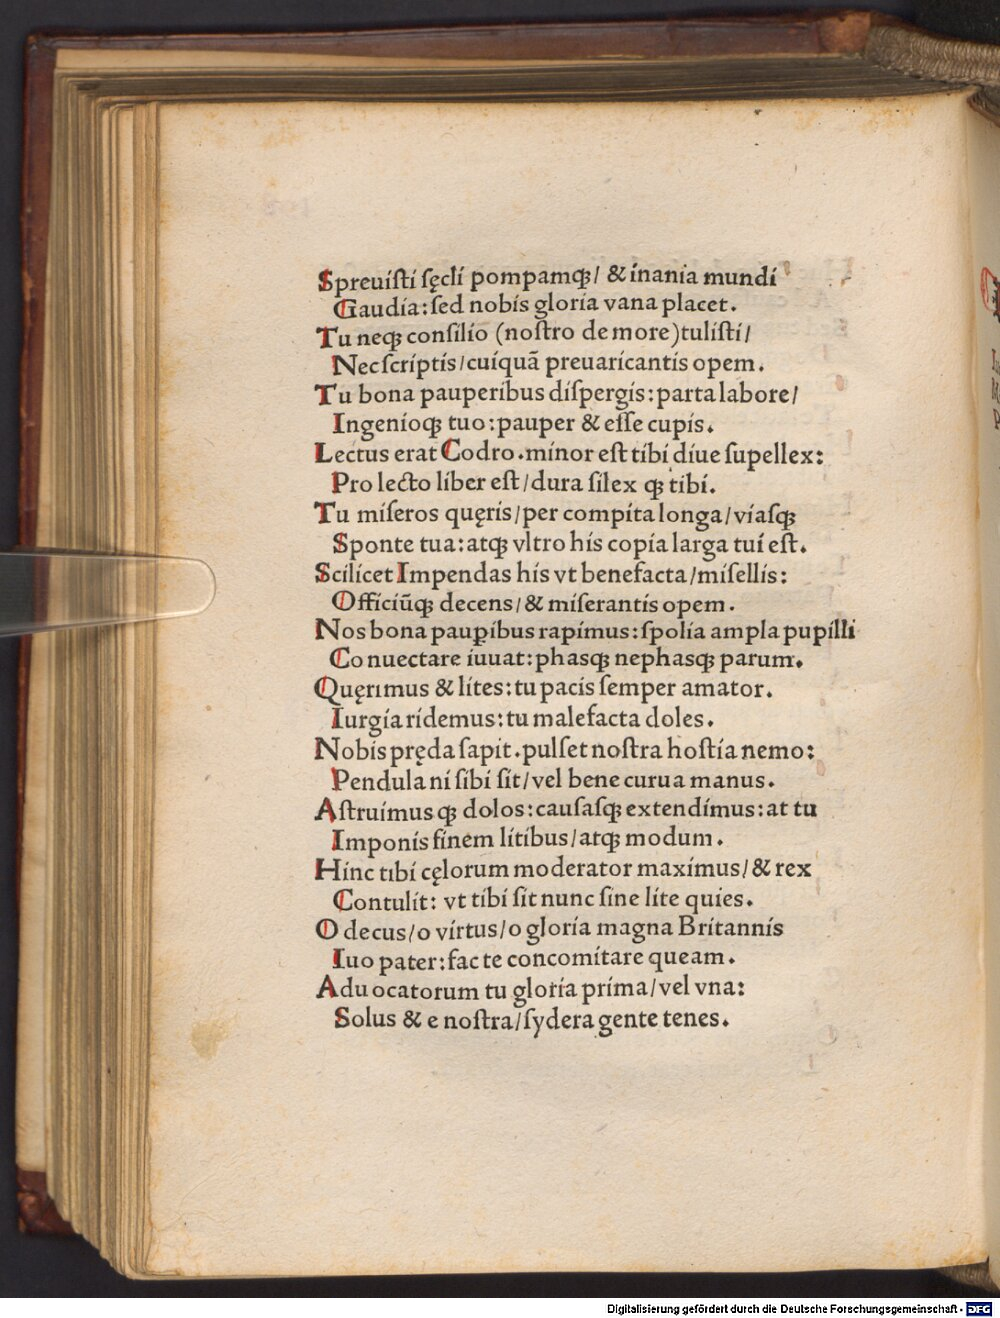 Spreuiſti ſęcli pompamqꝫ/ & inania mundi
Gaudia: ſed nobis gloria vana placet.
Tu neqꝫ conſilio (noſtro de more) tuliſti/
Nec ſcriptis/ cuiquã preuaricantis opem.
Tu bona pauperibus diſpergis: parta labore/
Ingenioqꝫ tuo: pauper & eſſe cupis.
Lectus erat Codro. minor eſt tibi diue ſupellex:
Pro lecto liber eſt/ dura ſilex qꝫ tibi.
Tu miſeros quęris/ per compita longa/ viaſqꝫ
Sponte tua: atqꝫ vltro his copia larga tui eſt.
Scilicet Impendas his vt benefacta/ miſellis:
Officiũqꝫ decens/ & miſerantis opem.
Nos bona pauꝑibus rapimus: ſpolia ampla pupilli
Co nuectare iuuat: phasqꝫ nephasqꝫ parum.
Quęrimus & lites: tu pacis ſemper amator.
Iurgia ridemus: tu malefacta doles.
Nobis pręda ſapit. pulſet noſtra hoſtia nemo:
Pendula ni ſibi ſit/ vel bene curua manus.
Aſtruimus qꝫ dolos: cauſaſqꝫ extendimus: at tu
Imponis finem litibus/ atqꝫ modum.
Hinc tibi cęlorum moderator maximus/ & rex
Contulit: vt tibi ſit nunc ſine lite quies.
O decus/ o virtus/ o gloria magna Britannis
Iuo pater: fac te concomitare queam.
Adu ocatorum tu gloria prima/ vel vna:
Solus & e noſtra/ ſydera gente tenes.
Digitalisierung gefördert durch die Deutsche Forschungsgemeinschaft - DFG